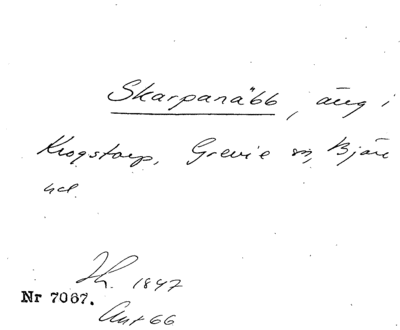 Skarpanäbb, äng i
Krogstorp, Grevie sn, Bjäre
hd.
1847
Nr 7067.
Ant 66